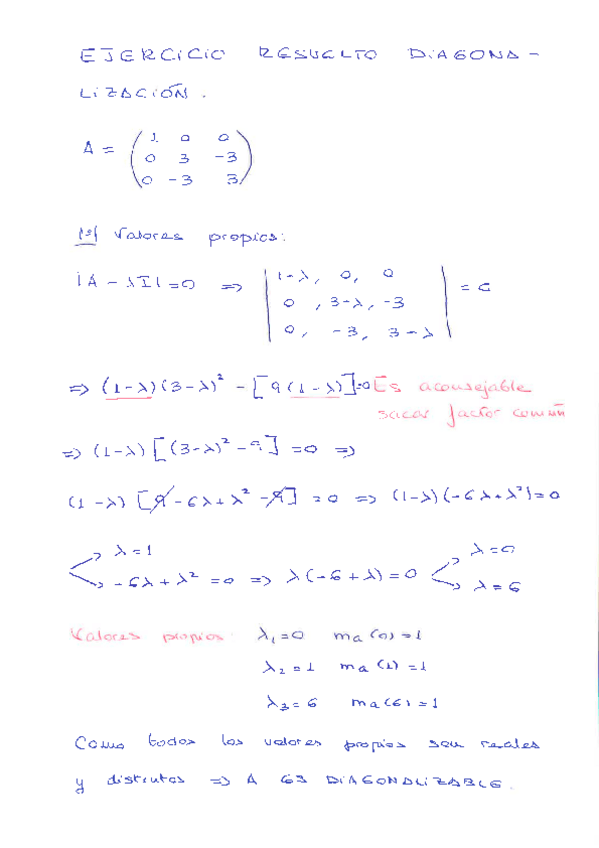 EJERCICIO RESUELTO DIAGONA-
LIZACIÓN.
A = ( 1 0 0
0 3 -3
0 -3 3 )
1º/ Valores propios:
|A - λI| = 0 ⇒ | 1-λ, 0, 0
0, 3-λ, -3 | = 0
0, -3, 3-λ |
⇒ (1-λ)(3-λ)² - [9(1-λ)] = 0 Es aconsejable
sacar factor común
⇒ (1-λ)[(3-λ)² - 9] = 0 ⇒
(1-λ)[9 - 6λ + λ² - 9] = 0 ⇒ (1-λ)(-6λ+λ²) = 0
λ = 1 λ = 0
-6λ + λ² = 0 ⇒ λ(-6+λ) = 0 λ = 6
Valores propios: λ₁ = 0 ma(0) = 1
λ₂ = 1 ma(1) = 1
λ₃ = 6 ma(6) = 1
Como todos los valores propios son reales
y distintos ⇒ A ES DIAGONALIZABLE.